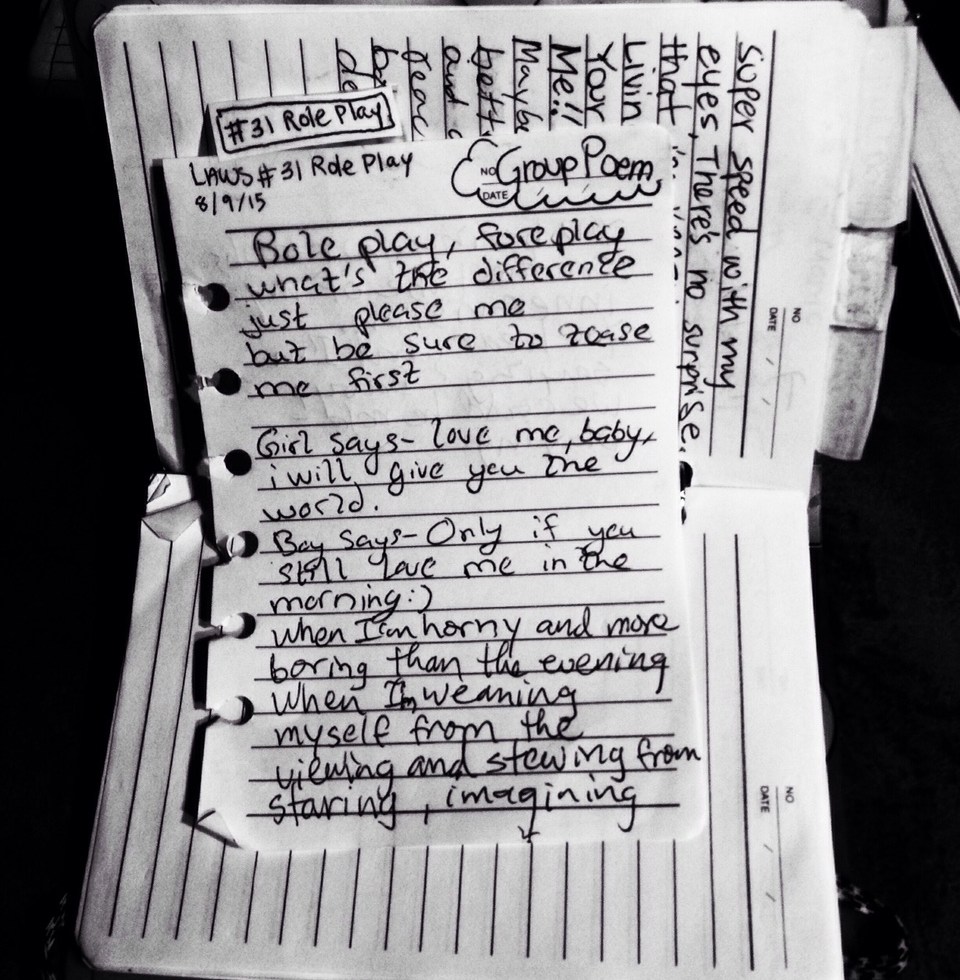 #31 Role Play
LAWS #31 Role Play
8/9/15
NO
DATE
Group Poem
Role play, foreplay
what's the difference
just please me
but be sure to tease
me first
Girl says- love me, baby,
i will give you the
world.
Boy says- Only if you
still love me in the
morning:)
When I'm horny and more
boring than the evening
When I'm weaning
myself from the
viewing and stewing from
staring, imagining
super speed with my
eyes, There's no surprise.
that
Livin
Your
Me!!
Maybe
bett
and
NO
DATE / /
NO
DATE / /